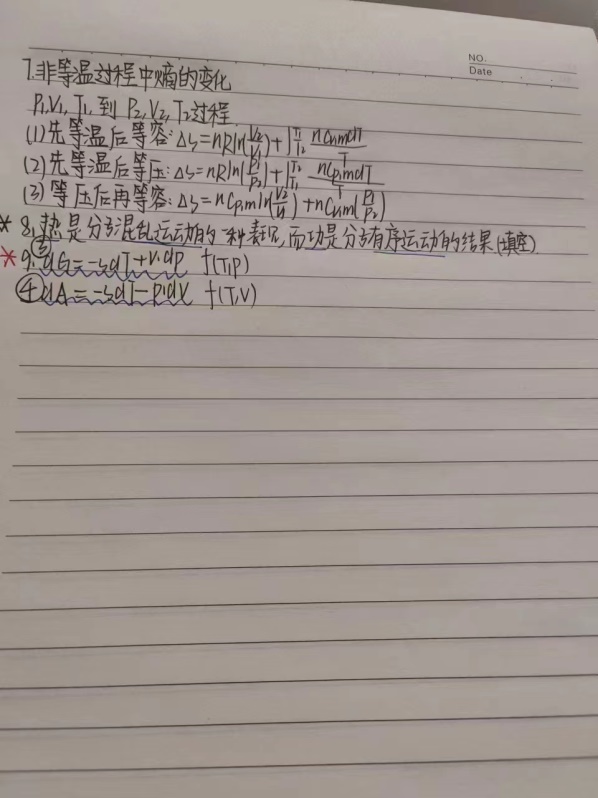 NO.
Date
7.非等温过程中熵的变化
P₁,V₁,T₁,到 P₂,V₂,T₂过程
(1)先等温后等容:ΔS=nRln(V₂/V₁)+∫T₁T₂ nCv,mdT/T
(2)先等温后等压:ΔS=nRln(P₁/P₂)+∫T₂T₁ nCp,mdT/T
(3)等压后再等容:ΔS=nCp,mln(V₂/V₁)+nCv,m(P₁/P₂)
*8.热是分子混乱运动的一种表现,而功是分子有序运动的结果(填空).
*9.③dG=-SdT+V·dp f(T,P)
④dA=-SdT-P·dV f(T,V)